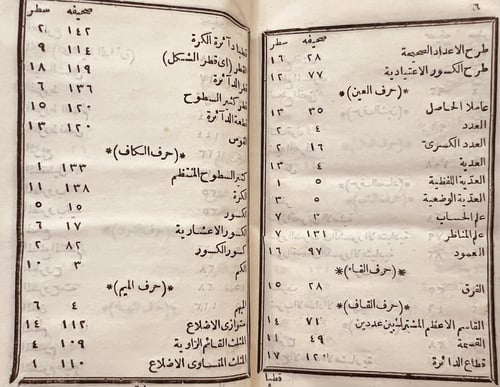 ٦
صحيفه سطر
طرح الاعداد الصحيحة ٢٨ ١٦
طرح الكسور الاعتيادية ٧٧ ١٢
*(حرف العين)*
عاملا الحاصل ٣٥ ١٣
العدد ٤ ٢
العدد الكسرى ١٦ ٢
العدية ٤ ١٣
العدية اللفظية ٥ ١
العدية الوضعية ٥ ٣
علم الحساب ٣ ٧
علم المناظر ١٣١ ٧
العمود ٩٧ ١٦
*(حرف الفاء)*
الفرق ٢٨ ١٥
*(حرف القاف)*
القاسم الاعظم المشترك بين عددين ٧١ ١٤
القسمة ٤٩ ١١
قطاع الدائرة ١٢٠ ١٧
قطبا
صحيفه سطر
قطبا دائرة الكرة ١٤٢ ٢
القطر (اى قطر الشكل) ١١٤ ٩
قطر الدائرة ١١٩ ١٨
قطر كثير السطوح ١٣٦ ٦
قطعة الدائرة ١٢٠ ١٥
القوس ١٢٠ ١٣
*(حرف الكاف)*
كثير السطوح المنتظم ١٣٣ ١
الكرة ١٣٨ ١١
الكسور ١٥ ٥
الكسور الاعشارية ١٧ ٦
كسور الكسور ٨٢ ٢
الكم ٣ ١٠
*(حرف الميم)*
الميم ٤ ٦
متوازى الاضلاع ١١٢ ١٤
المثلث القائم الزاوية ١٠٩ ٤
المثلث المتساوى الاضلاع ١١٠ ١